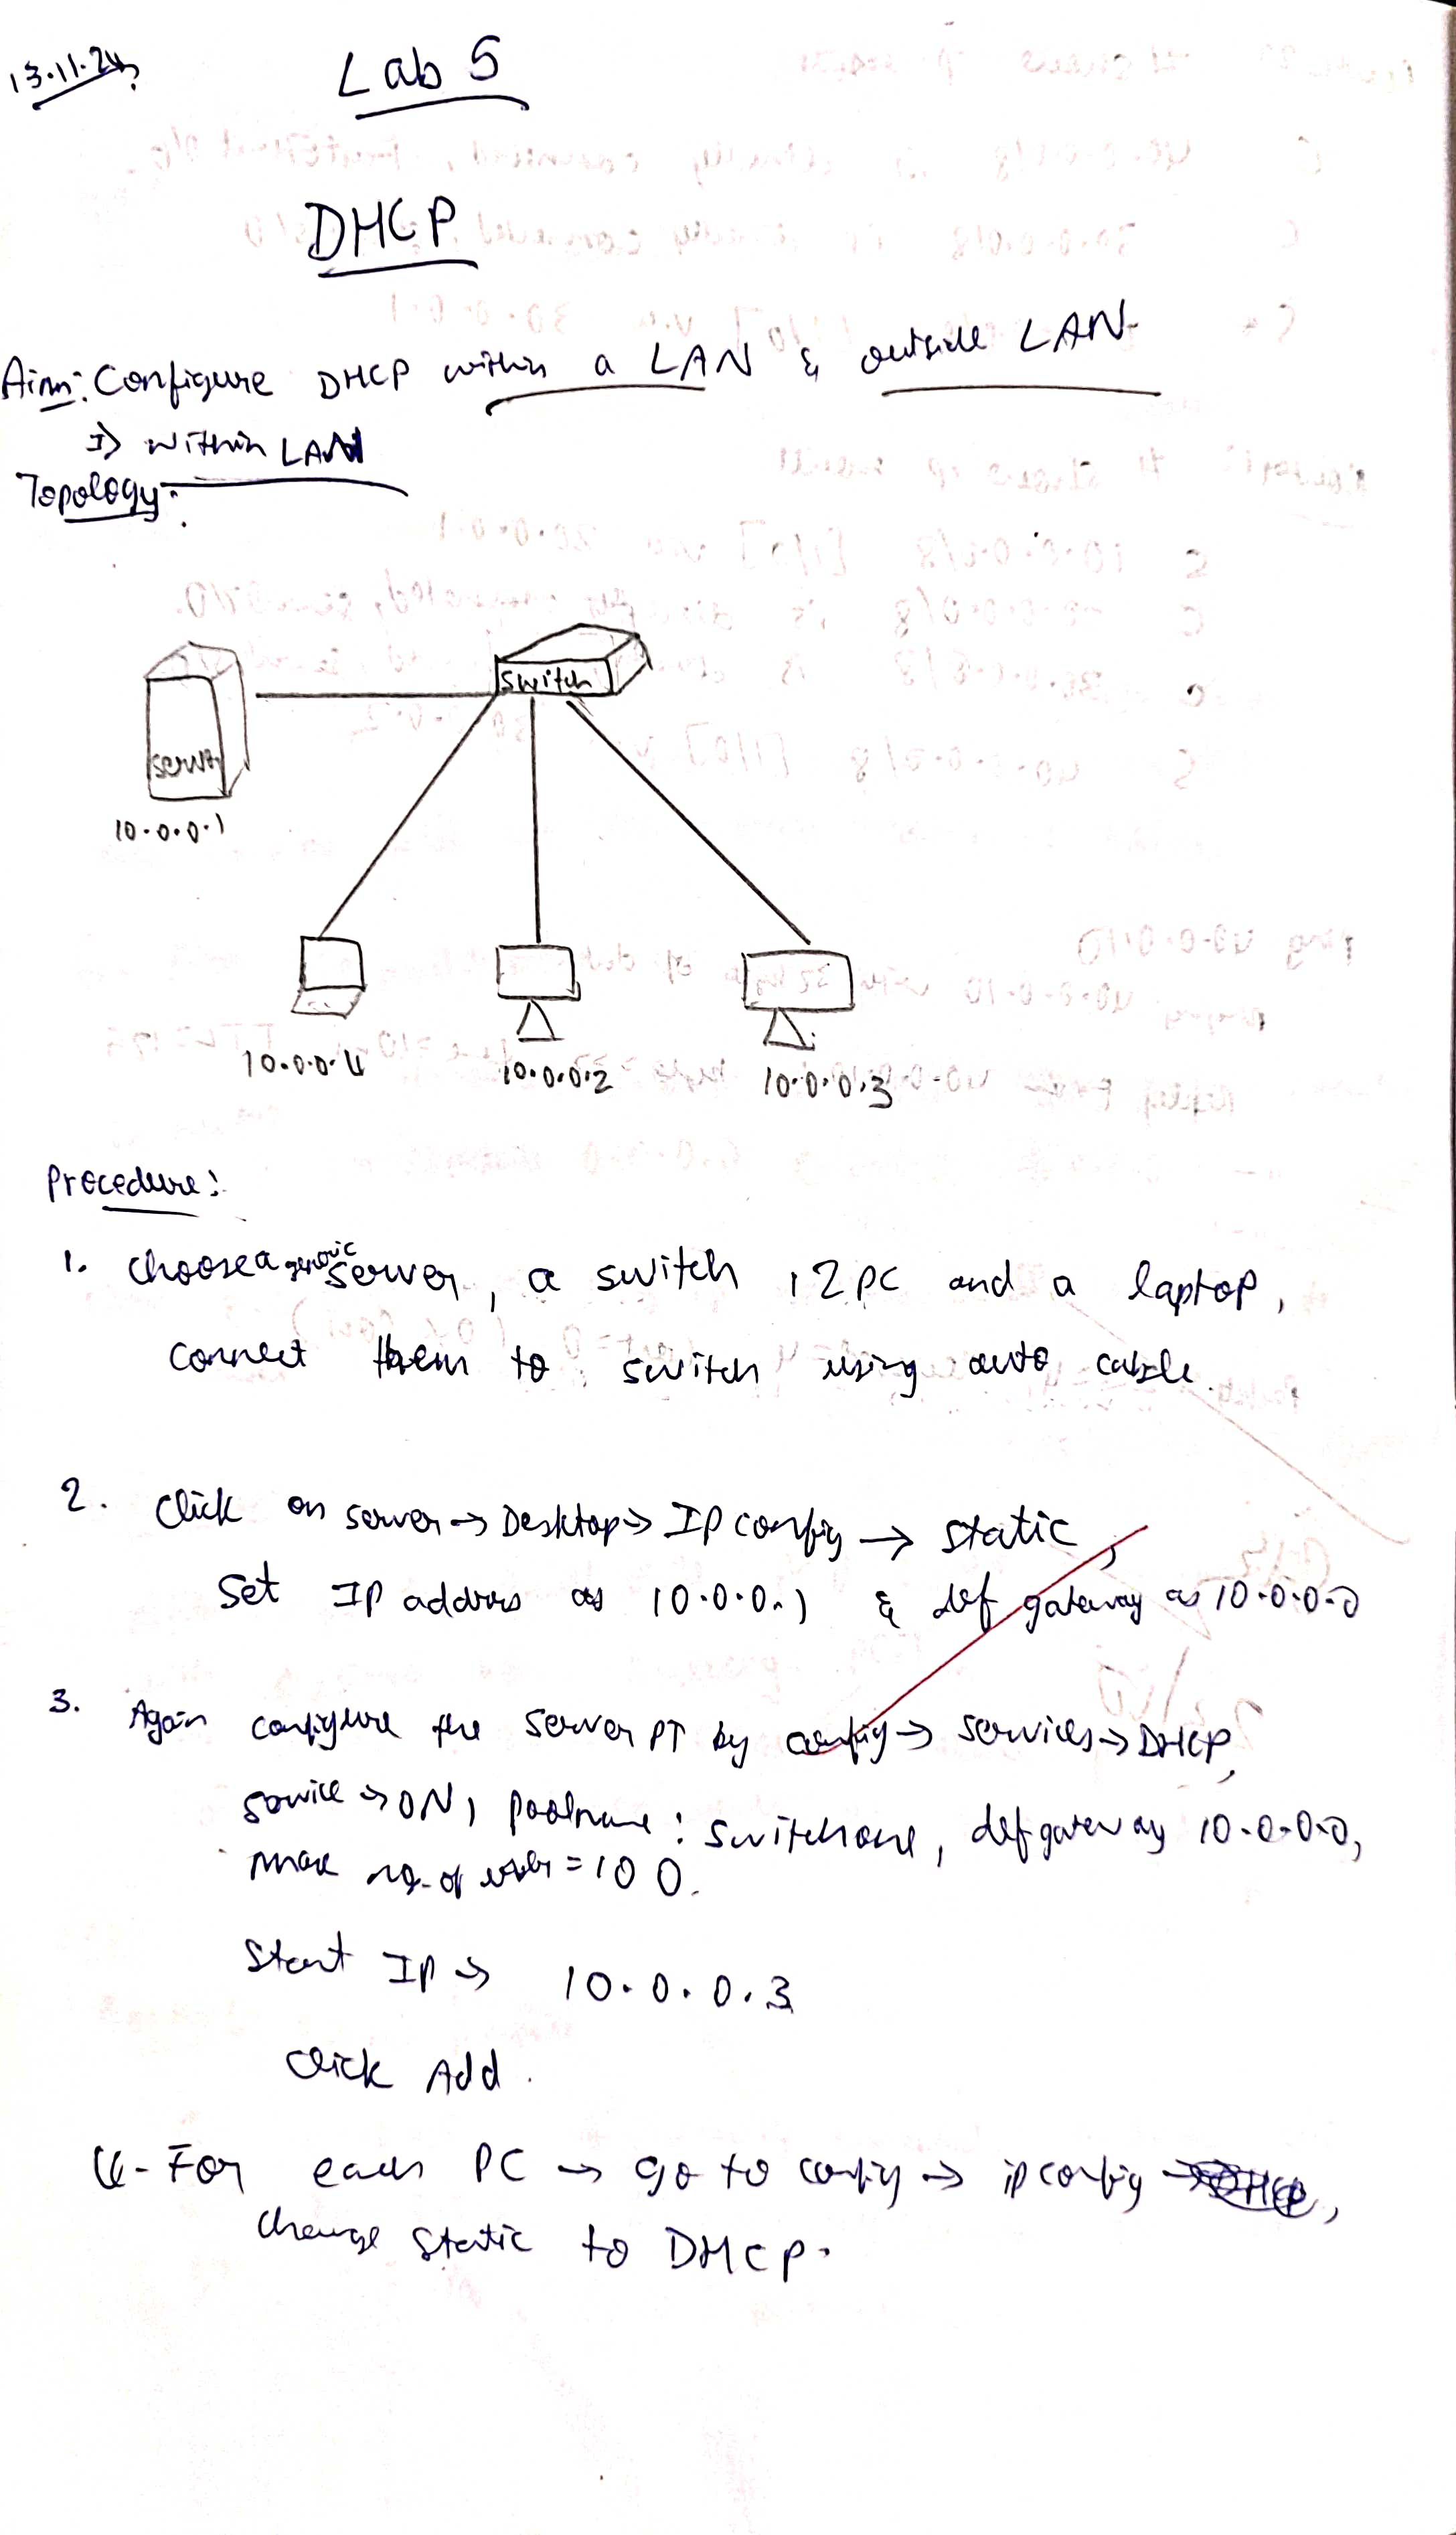 13.11.24
Lab 5
DHCP
Aim: Configure DHCP within a LAN & outside LAN
I> within LAN
Topology:
switch
server
10.0.0.1
10.0.0.4
10.0.0.2
10.0.0.3
Procedure:
1. Choose a generic server, a switch, 2 PC and a laptop,
connect them to switch using auto cable.
2. Click on server → Desktop → IP config → static,
Set IP address as 10.0.0.1 & def gateway as 10.0.0.0
3. Again configure the server PT by config → services → DHCP,
service → ON, poolname: switchone, def gateway 10.0.0.0,
max no. of users = 100.
Start IP → 10.0.0.3
Click Add.
4. For each PC → go to config → ip config →
change static to DHCP.